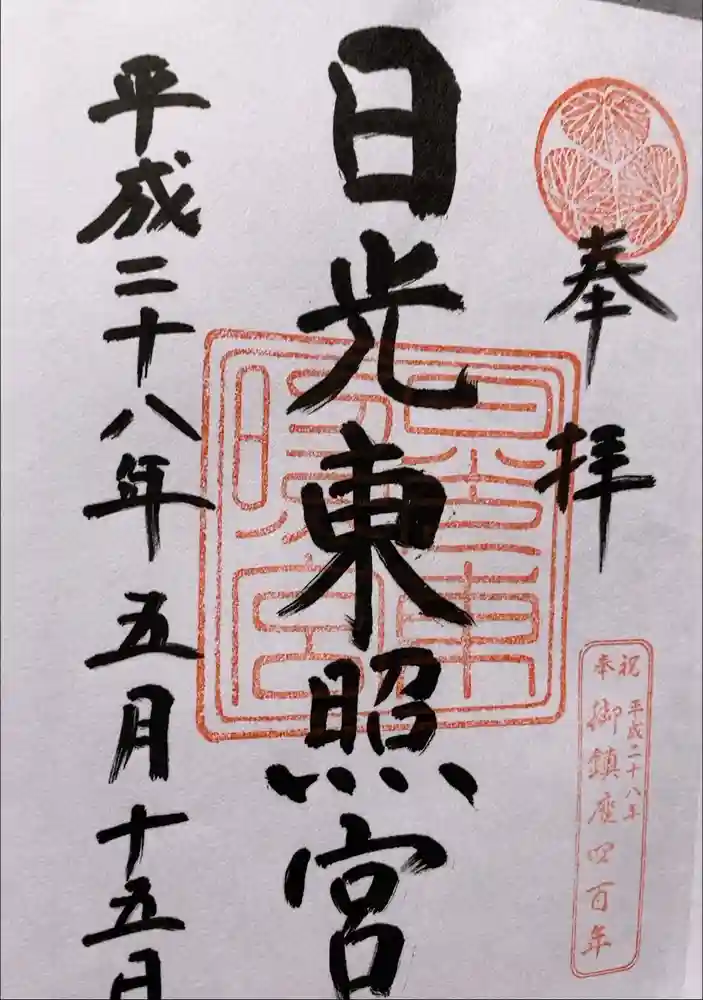 奉拝
日光東照宮
平成二十八年五月十五日
奉祝
平成二十八年
御鎮座四百年
日光東照宮